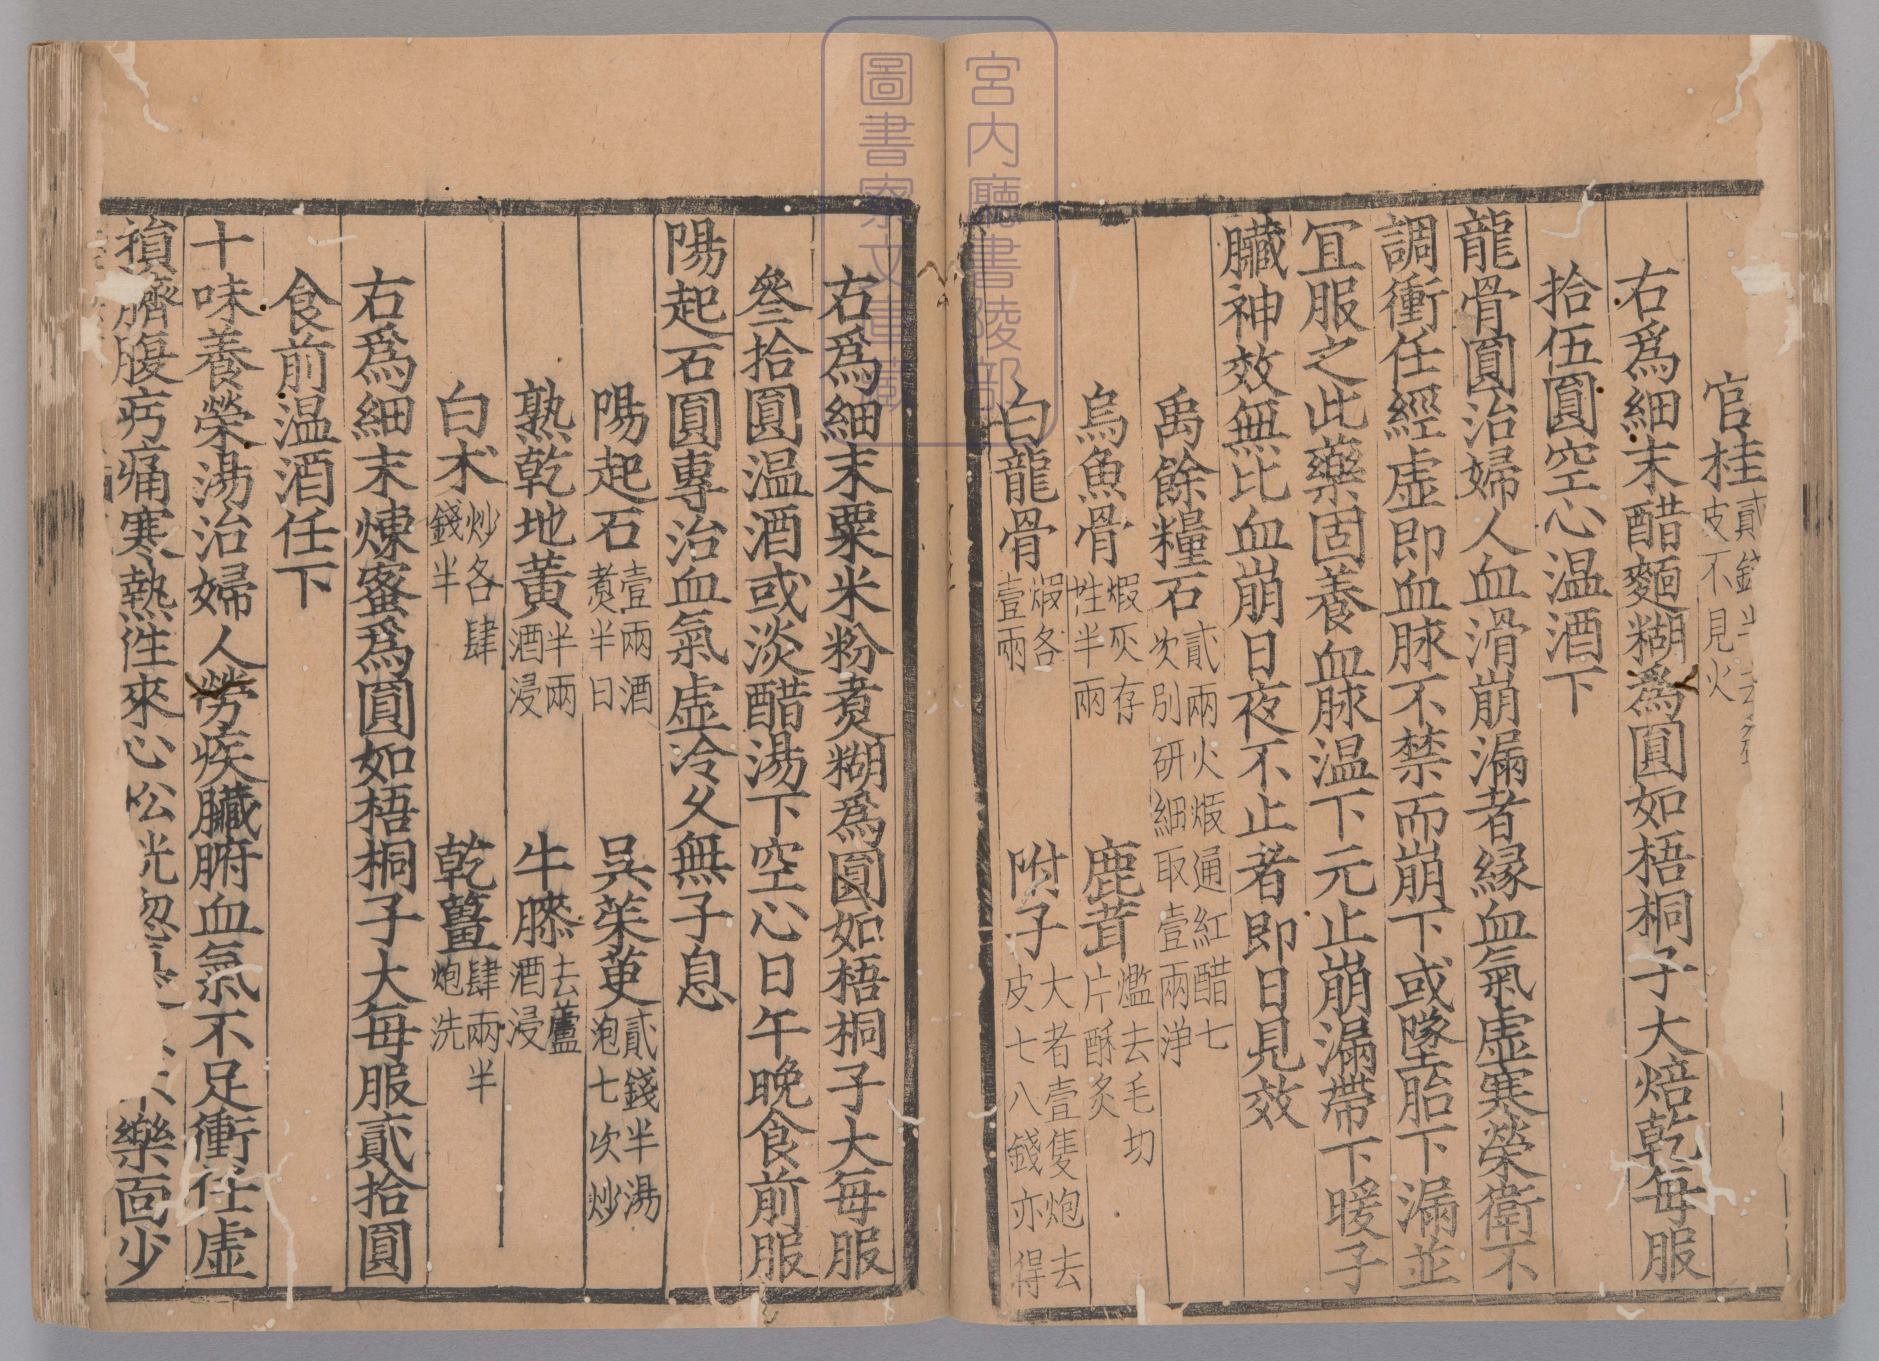 官桂貳錢半去
皮不見火
右爲細末醋麵糊爲圓如梧桐子大焙乾每服
拾伍圓空心温酒下
龍骨圓治婦人血滑崩漏者縁血氣虚寒榮衛不
調衝任經虚即血脉不禁而崩下或墜胎下漏並
冝服之此藥固養血脉温下元止崩漏帶下暖子
臓神效無比血崩日夜不止者即日見效
禹餘糧石貳兩火煆通紅醋七
次别研細取壹兩净
烏魚骨煆灰存
性半兩
鹿茸爁去毛切
片酥炙
白龍骨煆各
壹兩
附子大者壹隻炮去
皮七八錢亦得
右爲細末粟米粉煑糊爲圓如梧桐子大每服
叄拾圓温酒或淡醋湯下空心日午晚食前服
陽起石圓專治血氣虚冷久無子息
陽起石壹兩酒
煑半日
呉茱萸貳錢半湯
泡七次炒
熟乾地黄半兩
酒浸
牛膝去蘆
酒浸
白术炒各肆
錢半
乾薑肆兩半
炮洗
右爲細末煉蜜爲圓如梧桐子大每服貳拾圓
食前温酒任下
十味養榮湯治婦人勞疾臓腑血氣不足衝任虚
損臍腹㽲痛寒熱徃來心忪恍惚樂面少
宮内廳書陵部
圖書寮文庫藏